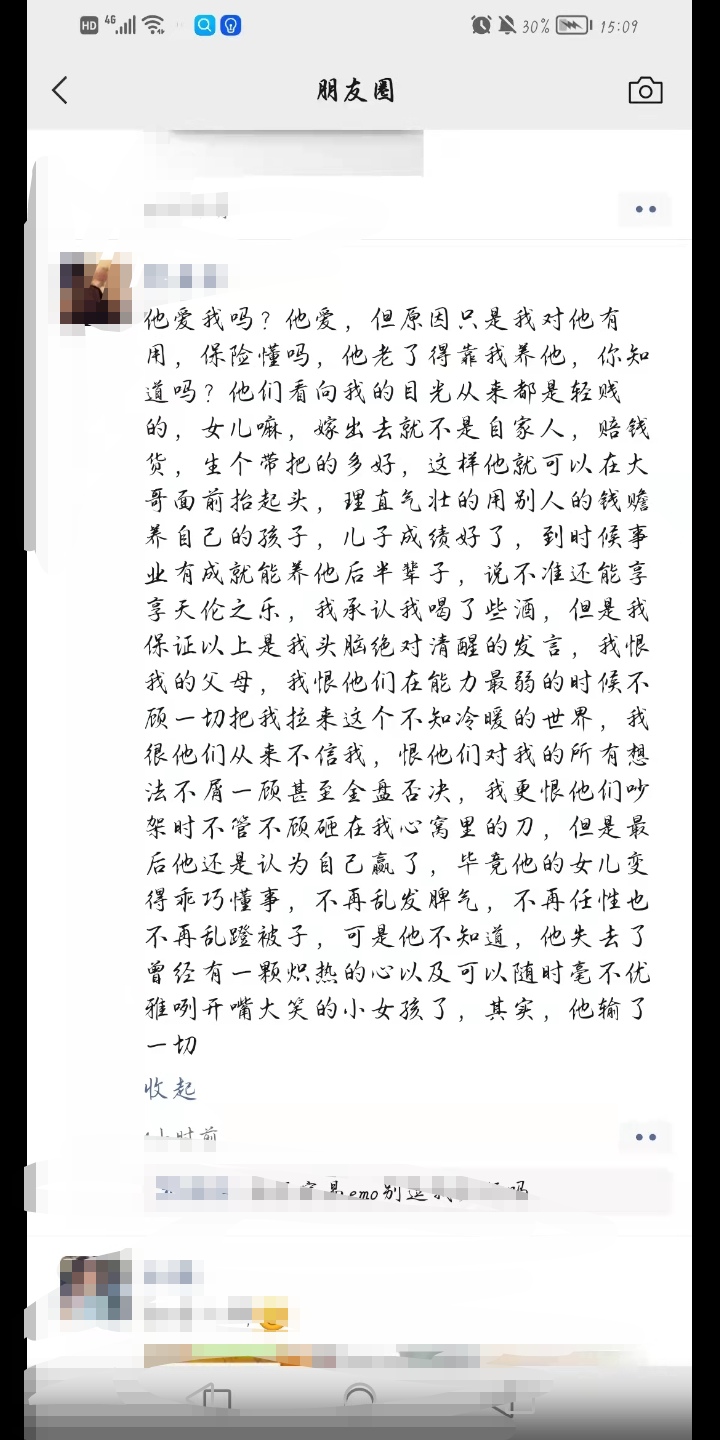 HD 4G 30% 15:09
朋友圈
他爱我吗？他爱，但原因只是我对他有
用，保险懂吗，他老了得靠我养他，你知
道吗？他们看向我的目光从来都是轻贱
的，女儿嘛，嫁出去就不是自家人，赔钱
货，生个带把的多好，这样他就可以在大
哥面前抬起头，理直气壮的用别人的钱赡
养自己的孩子，儿子成绩好了，到时候事
业有成就能养他后半辈子，说不准还能享
享天伦之乐，我承认我喝了些酒，但是我
保证以上是我头脑绝对清醒的发言，我恨
我的父母，我恨他们在能力最弱的时候不
顾一切把我拉来这个不知冷暖的世界，我
很他们从来不信我，恨他们对我的所有想
法不屑一顾甚至全盘否决，我更恨他们吵
架时不管不顾砸在我心窝里的刀，但是最
后他还是认为自己赢了，毕竟他的女儿变
得乖巧懂事，不再乱发脾气，不再任性也
不再乱蹬被子，可是他不知道，他失去了
曾经有一颗炽热的心以及可以随时毫不优
雅咧开嘴大笑的小女孩了，其实，他输了
一切
收起
小时前
emo别逗我